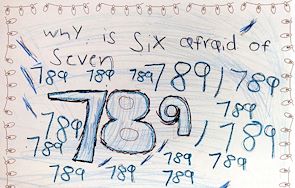 why is six afraid of
seven
789 789 789 789, 789
789 789, 789
789 789
789 789 789